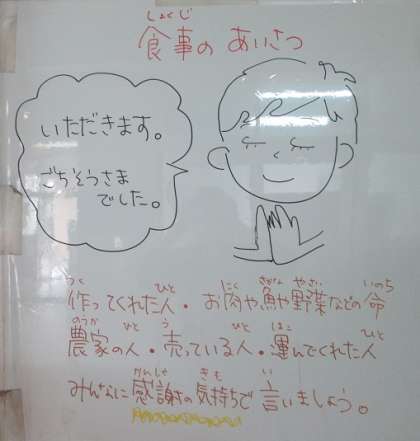 しょくじ
食事の あいさつ
いただきます。
ごちそうさま
でした。
つく ひと にく さかな やさい いのち
作ってくれた人・お肉や魚や野菜などの命
のうか ひと う ひと はこ ひと
農家の人・売っている人・運んでくれた人
かんしゃ きも い
みんなに感謝の気持ちで言いましょう。